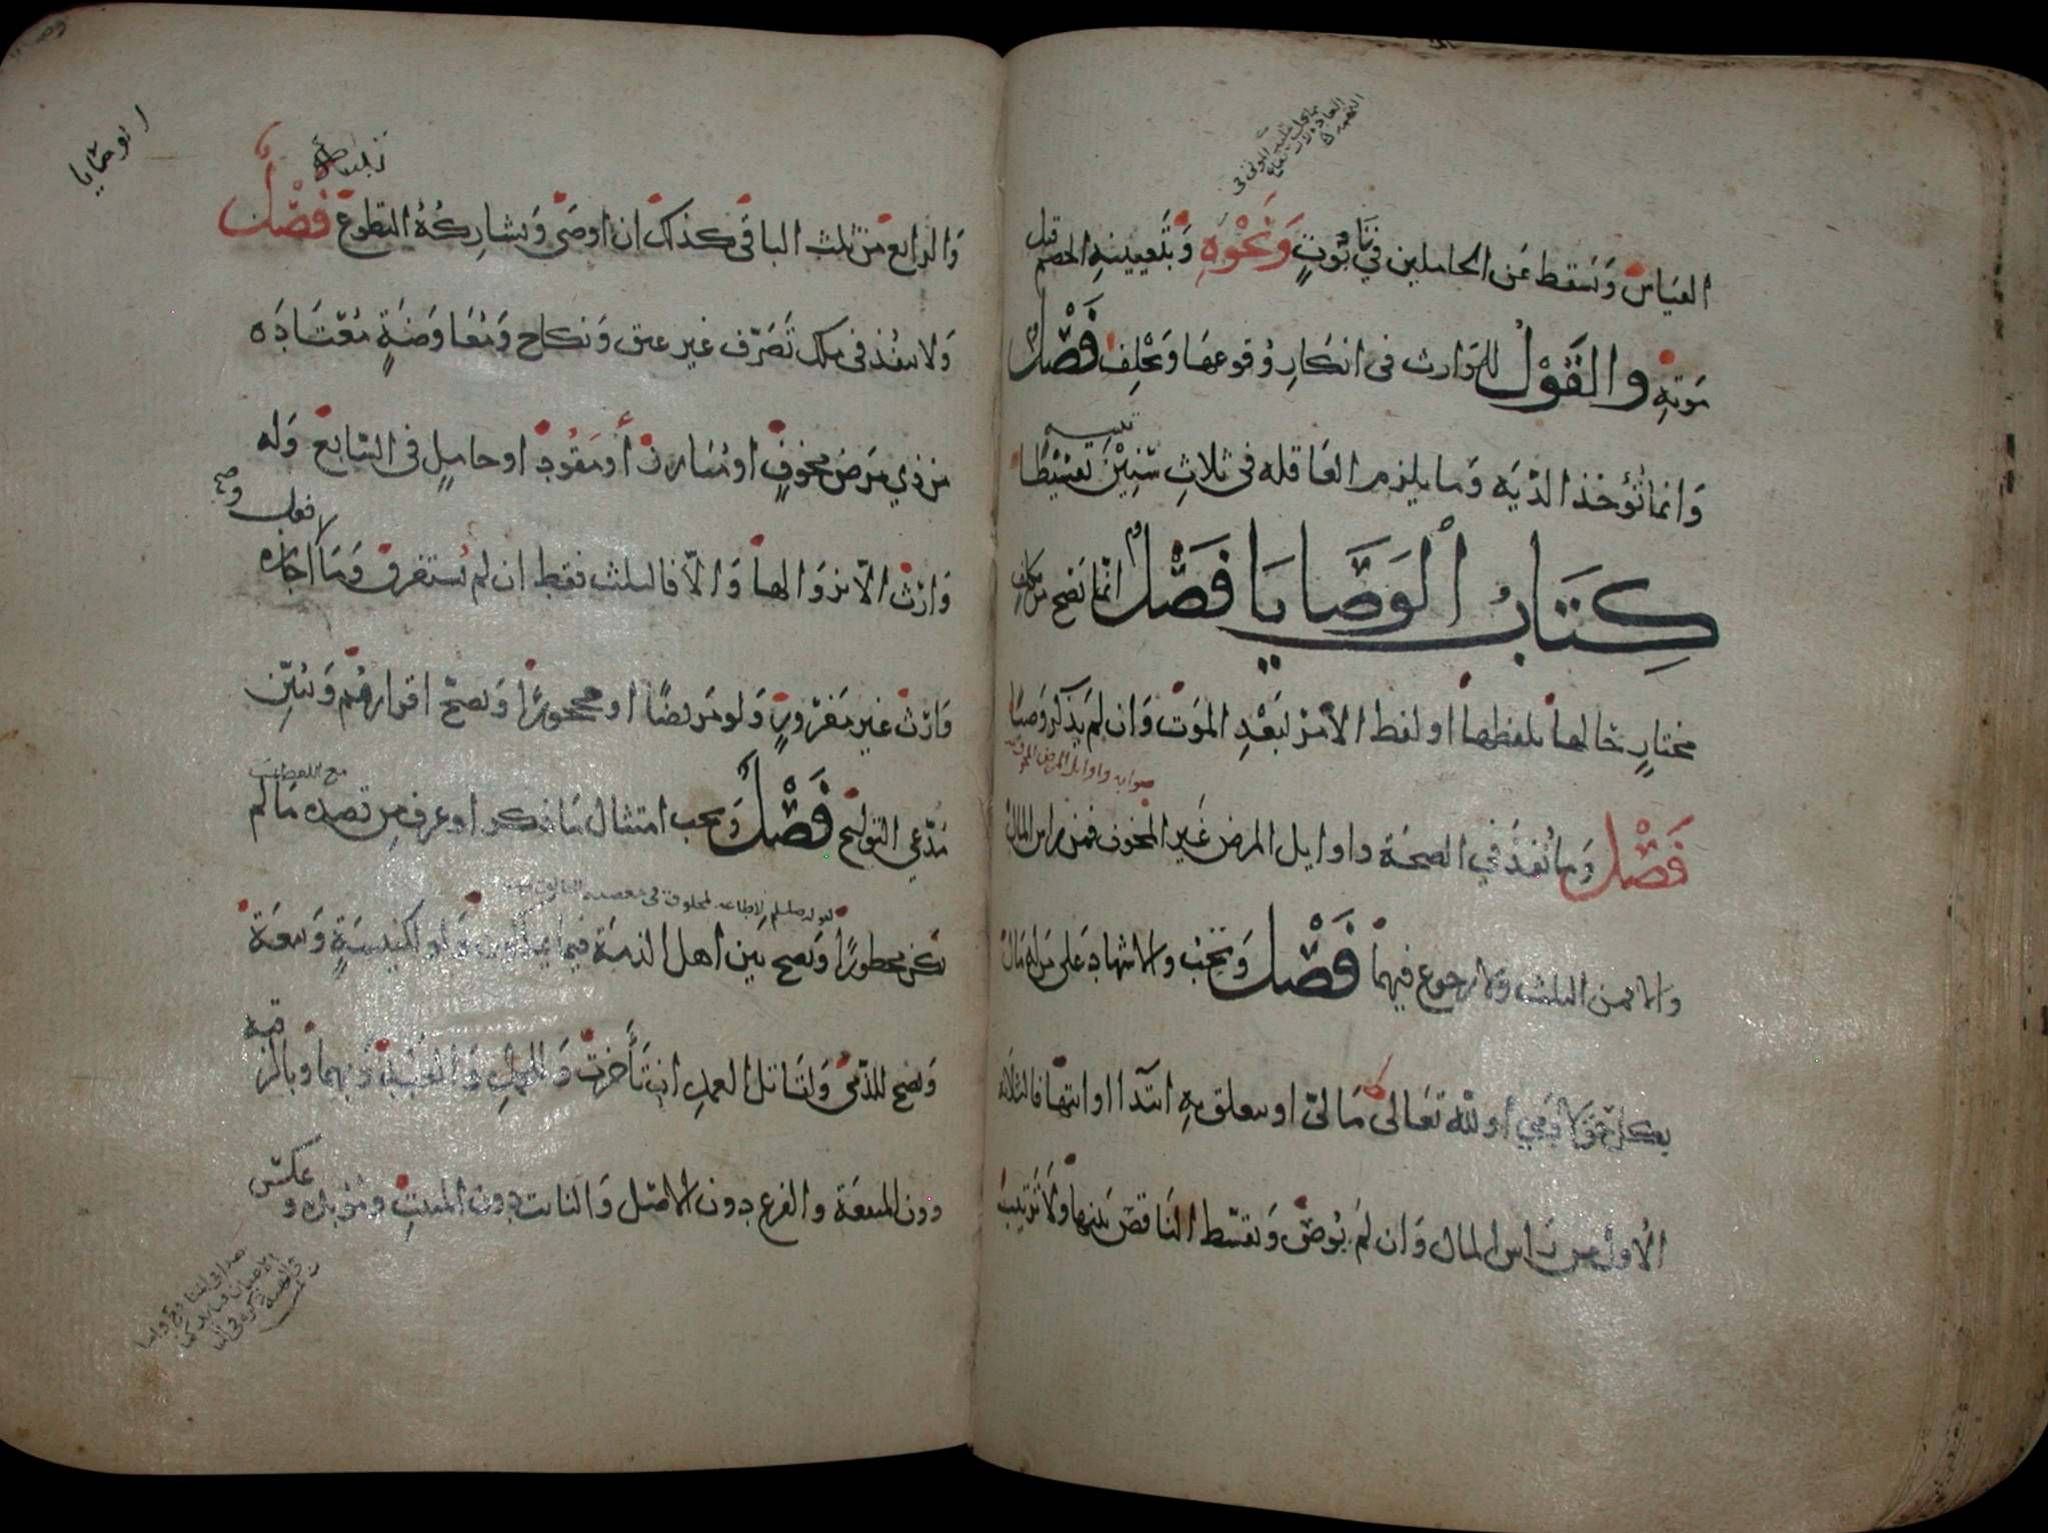 القياس وتسقط عن الحاملين في تابوت ونحوه وبتعيينه الخصم قبل
موته والقول للوارث في انكار وقوعها ويحلف فصل
وانما تؤخذ الدية وما يلزم العاقله في ثلاث سنين تقسيطا
كتاب الوصايا فصل انما تصح من مكلف
مختار حالها بلفظها او لفظ الامر لبعد الموت وان لم يذكر وصيا
صوابه واوايل المرض المخوف
فصل وما نفذ في الصحة واوايل المرض غير المخوف فمن راس المال
والا فمن الثلث ولا رجوع فيهما فصل وتجب والاشهاد على من له مال
بكل حق لآدمي أو لله تعالى مالي او يتعلق به ابتدا او انتها فالثلاثة
الأول من راس المال وان لم يوص وتقسط الناقص بينها ولا ترتيب
الوصايا
والرابع من ثلث الباقي كذلك ان اوصى ويشاركه التطوع فصل
ولا ينفذ في ملك تصرف غير عتق ونكاح ومعاوضة معتادة
من ذي مرض مخوف او مبارز أو مقود او حامل في السابع وله
وارث الا بزوالها والا فالثلث فقط ان لم يستغرق وما اجازه
وارث غير مغرور ولو مريضا او محجورا ويصح اقرارهم ويبين
مدعي التوليج فصل ويجب امتثال ما ذكر او عرف من قصده ما لم
لقوله صلعلم لا طاعة لمخلوق في معصية الخالق
يكن محظورا ويصح بين اهل الذمة فيما يملكون ولو لكنيسة وبيعة
وتصح للذمي ولقاتل العمد ان تأخرت وللحمل والعبد وبهما وبالرقبة
دون المنفعة والفرع دون الاصل والنابت دون المنبت ومؤبده وعكسه